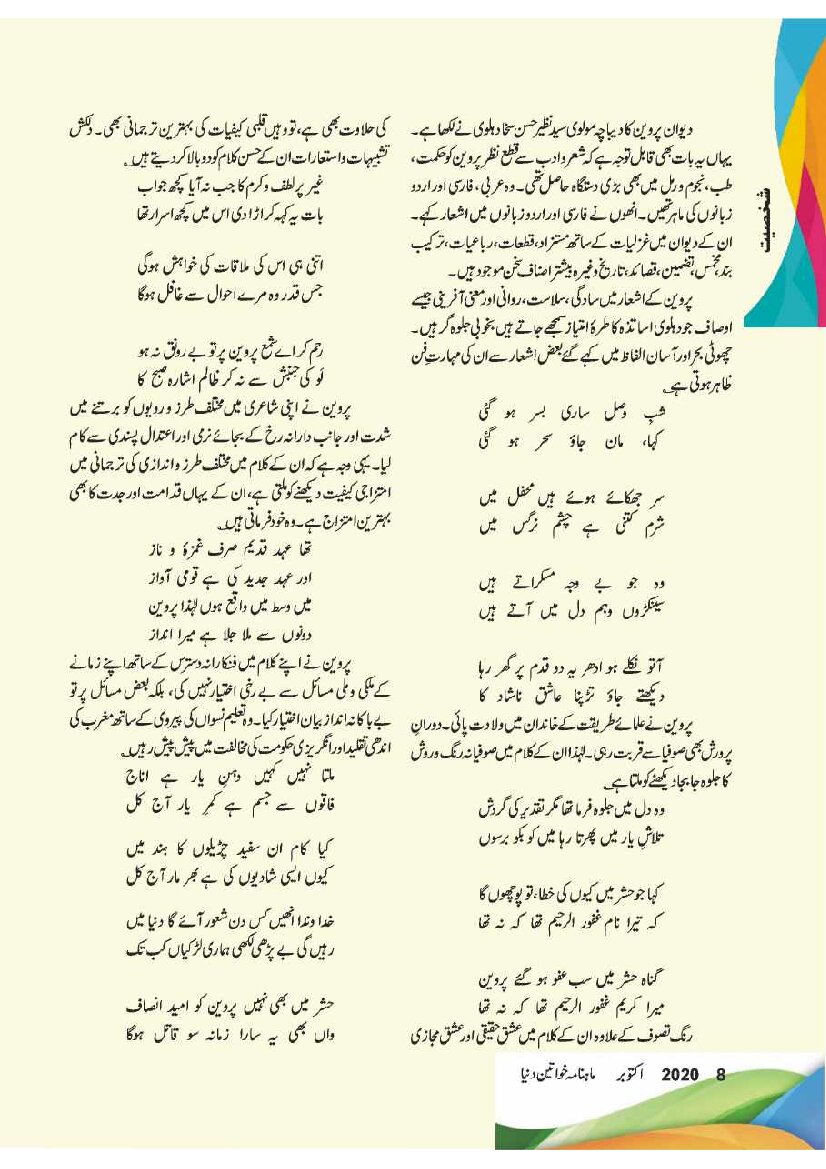 شخصیت
دیوان پروین کا دیباچہ مولوی سید نظیر حسن سخا دہلوی نے لکھا ہے۔
یہاں یہ بات بھی قابل توجہ ہے کہ شعر و ادب سے قطع نظر پروین کو حکمت،
طب، نجوم و رمل میں بھی بڑی دستگاہ حاصل تھی۔ وہ عربی، فارسی اور اردو
زبانوں کی ماہر تھیں۔ انھوں نے فارسی اور اردو زبانوں میں اشعار کہے۔
ان کے دیوان میں غزلیات کے ساتھ مستزاد، قطعات، رباعیات، ترکیب
بند، مخمس، تضمین، قصائد، تاریخ وغیرہ بیشتر اصناف سخن موجود ہیں۔
پروین کے اشعار میں سادگی، سلاست، روانی اور معنی آفرینی جیسے
اوصاف جو دہلوی اساتذہ کا طرۂ امتیاز سمجھے جاتے ہیں بخوبی جلوہ گر ہیں۔
چھوٹی بحر اور آسان الفاظ میں کہے گئے بعض اشعار سے ان کی مہارتِ فن
ظاہر ہوتی ہے۔
شبِ وصل ساری بسر ہو گئی
کہا، مان جاؤ سحر ہو گئی
سر جھکائے ہوئے ہیں محفل میں
شرم کتنی ہے چشم نرگس میں
وہ جو بے وجہ مسکراتے ہیں
سینکڑوں وہم دل میں آتے ہیں
آتو نکلے ہو ادھر یہ دو قدم پر گھر رہا
دیکھتے جاؤ تڑپنا عاشق ناشاد کا
پروین نے علمائے طریقت کے خاندان میں ولادت پائی۔ دورانِ
پرورش بھی صوفیا سے قربت رہی۔ لہٰذا ان کے کلام میں صوفیانہ رنگ و روش
کا جلوہ جا بجا دیکھنے کو ملتا ہے۔
وہ دل میں جلوہ فرما تھا مگر تقدیر کی گردش
تلاشِ یار میں پھرتا رہا میں کو بکو برسوں
کہا جو حشر میں کیوں کی خطا، تو پوچھوں گا
کہ تیرا نام غفور الرحیم تھا کہ نہ تھا
گناہ حشر میں سب عفو ہو گئے پروین
میرا کریم غفور الرحیم تھا کہ نہ تھا
رنگ تصوف کے علاوہ ان کے کلام میں عشق حقیقی اور عشق مجازی
کی حلاوت بھی ہے، تو وہیں قلبی کیفیات کی بہترین ترجمانی بھی۔ دلکش
تشبیہات و استعارات ان کے حسن کلام کو دوبالا کر دیتے ہیں۔
غیر پر لطف و کرم کا جب نہ آیا کچھ جواب
بات یہ کہہ کر اڑا دی اس میں کچھ اسرار تھا
اتنی ہی اس کی ملاقات کی خواہش ہوگی
جس قدر وہ مرے احوال سے غافل ہوگا
رحم کر اے شمع پروین پر تو بے رونق نہ ہو
لَو کی جنبش سے نہ کر ظالم اشارہ صبح کا
پروین نے اپنی شاعری میں مختلف طرز و رویوں کو برتنے میں
شدت اور جانب دارانہ رخ کے بجائے نرمی اور اعتدال پسندی سے کام
لیا۔ یہی وجہ ہے کہ ان کے کلام میں مختلف طرز و انداز کی ترجمانی میں
امتزاجی کیفیت دیکھنے کو ملتی ہے، ان کے یہاں قدامت اور جدت کا بھی
بہترین امتزاج ہے۔ وہ خود فرماتی ہیں۔
تھا عہد قدیم صرف غمزۂ و ناز
اور عہد جدید کی ہے قومی آواز
میں وسط میں واقع ہوں لہٰذا پروین
دونوں سے ملا جلا ہے میرا انداز
پروین نے اپنے کلام میں فنکارانہ دسترس کے ساتھ اپنے زمانے
کے ملکی و ملی مسائل سے بے رخی اختیار نہیں کی، بلکہ بعض مسائل پر تو
بے باکانہ انداز بیان اختیار کیا۔ وہ تعلیم نسواں کی پیروی کے ساتھ مغرب کی
اندھی تقلید اور انگریزی حکومت کی مخالفت میں پیش پیش رہیں۔
ملتا نہیں کہیں دہنِ یار ہے اناج
فاقوں سے جسم ہے کمرِ یار آج کل
کیا کام ان سفید چڑیلوں کا ہند میں
کیوں ایسی شادیوں کی ہے بھر مار آج کل
خداوندا انھیں کس دن شعور آئے گا دنیا میں
رہیں گی بے پڑھی لکھی ہماری لڑکیاں کب تک
حشر میں بھی نہیں پروین کو امید انصاف
واں بھی یہ سارا زمانہ سو قاتل ہوگا
ماہنامہ خواتین دنیا اکتوبر 2020 8